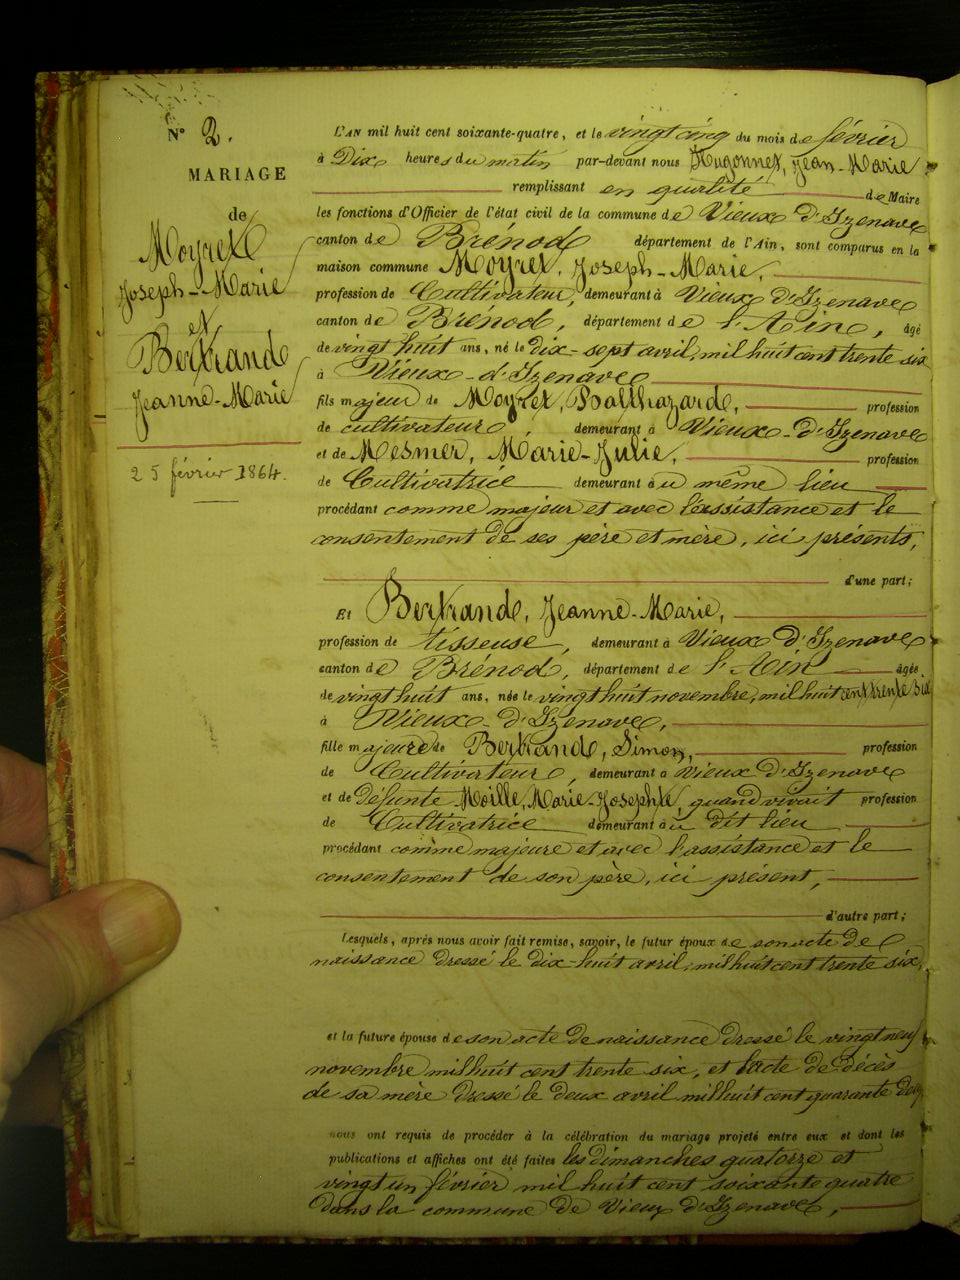 N° 2.
MARIAGE
de
Moyret
Joseph-Marie
et
Bertrand
Jeanne-Marie
25 février 1864.
L'AN mil huit cent soixante-quatre, et le vingt cinq du mois de février
à Dix heures du matin par-devant nous Hugonnet, Jean-Marie
remplissant en qualité de Maire
les fonctions d'Officier de l'état civil de la commune de Vieux d'Izenave
canton de Brénod département de l'Ain, sont comparus en la
maison commune Moyret, Joseph-Marie,
profession de Cultivateur, demeurant à Vieux d'Izenave
canton de Brénod, département de l'Ain, âgé
de vingt huit ans, né le dix-sept avril, mil huit cent trente six
à Vieux-d'Izenave
fils majeur de Moyret, Balthazard, profession
de cultivateur, demeurant à Vieux-d'Izenave
et de Mesmer, Marie-Julie, profession
de Cultivatrice demeurant au même lieu
procédant comme majeur et avec l'assistance et le
consentement de ses père et mère, ici présents,
d'une part;
Et Bertrand, Jeanne-Marie,
profession de tisseuse, demeurant à Vieux d'Izenave
canton de Brénod, département de l'Ain âgée
de vingt huit ans, née le vingt huit novembre, mil huit cent trente six
à Vieux-d'Izenave,
fille majeure de Bertrand, Simon, profession
de Cultivateur, demeurant à Vieux d'Izenave
et de défunte Moille, Marie-Josephte, quand vivait profession
de Cultivatrice demeurant au dit lieu
procédant comme majeure et avec l'assistance et le
consentement de son père, ici présent,
d'autre part;
Lesquels, après nous avoir fait remise, savoir, le futur époux de son acte de
naissance dressé le dix-huit avril, mil huit cent trente six,
et la future épouse de son acte de naissance dressé le vingt neuf
novembre mil huit cent trente six, et l'acte de décès
de sa mère dressé le deux avril mil huit cent quarante deux,
nous ont requis de procéder à la célébration du mariage projeté entre eux et dont les
publications et affiches ont été faites les dimanches quatorze et
vingt un février mil huit cent soixante quatre
dans la commune de Vieux d'Izenave,